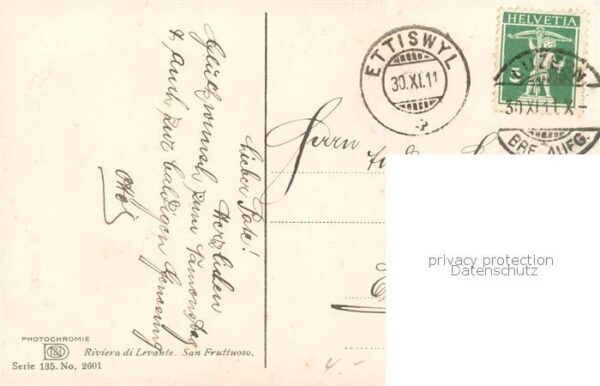 Lieber Pate!
Herzlichen
Glückwunsch zum Namenstag
& auch zur baldigen Genesung
Otto
PHOTOCHROMIE
Riviera di Levante. San Fruttuoso.
Serie 135. No. 2601
ETTISWYL
30.XI.11
HELVETIA
5
LUZERN
30.XI.11.X-
BRF.AUFG.
Herrn
privacy protection
Datenschutz
4.-